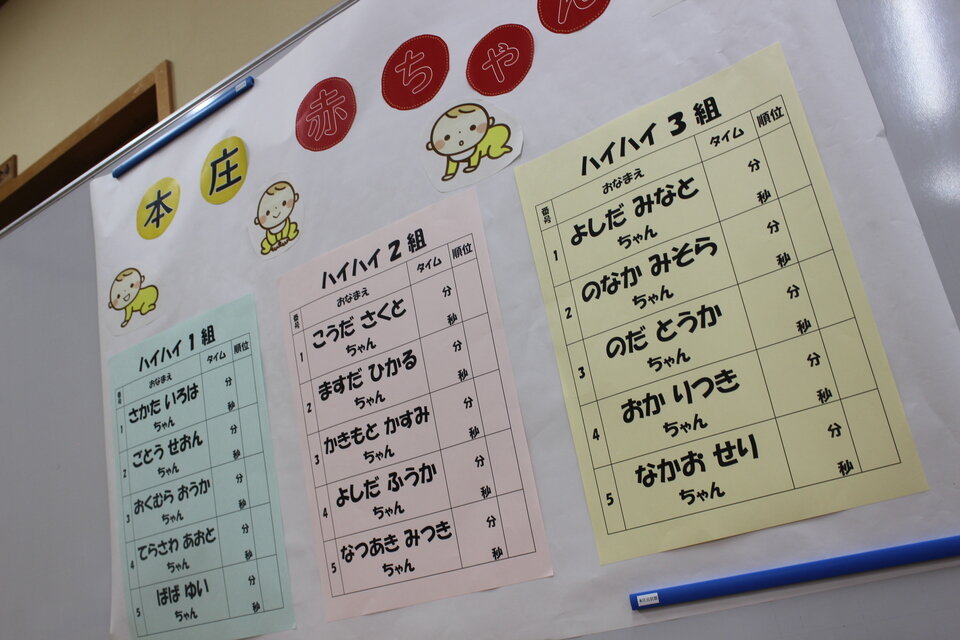 本庄 赤ちゃん
ハイハイ1組
番号 おなまえ タイム 順位
1 さかた いろは ちゃん 分 秒
2 ごとう せおん ちゃん 分 秒
3 おくむら おうか ちゃん 分 秒
4 てらさわ あおと ちゃん 分 秒
5 ばば ゆい ちゃん 分 秒
ハイハイ2組
番号 おなまえ タイム 順位
1 こうだ さくと ちゃん 分 秒
2 ますだ ひかる ちゃん 分 秒
3 かきもと かすみ ちゃん 分 秒
4 よしだ ふうか ちゃん 分 秒
5 なつあき みつき ちゃん 分 秒
ハイハイ3組
番号 おなまえ タイム 順位
1 よしだ みなと ちゃん 分 秒
2 のなか みそら ちゃん 分 秒
3 のだ とうか ちゃん 分 秒
4 おか りつき ちゃん 分 秒
5 なかお せり ちゃん 分 秒